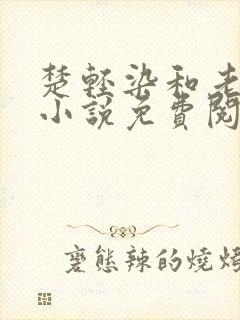 楚輕染和老
小說免費閱
變態辣的燒烤